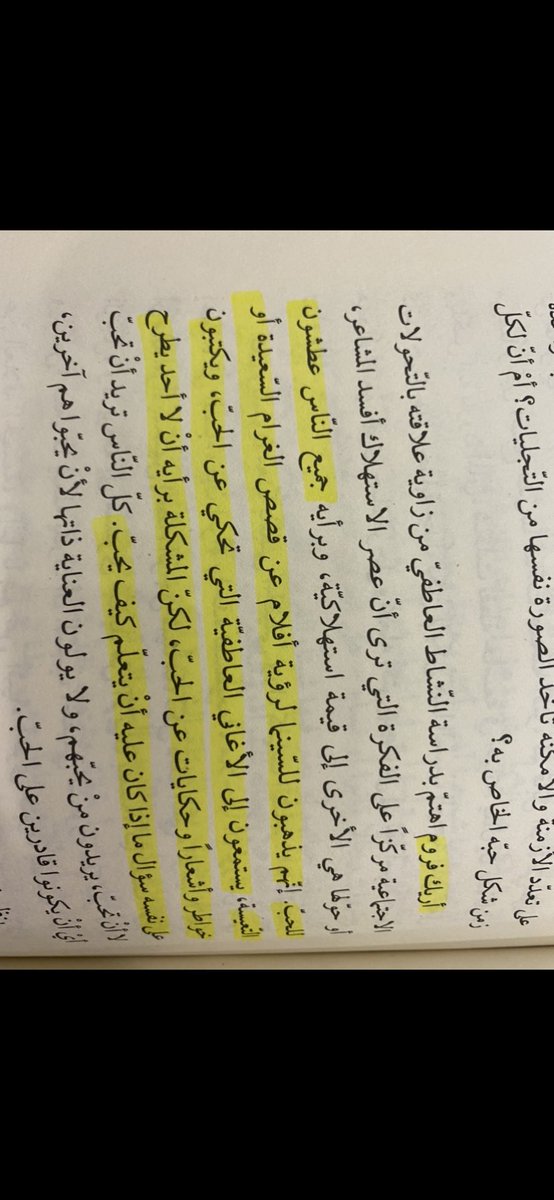 على تعدّد الأزمنة والأمكنة تأخذ الصورة نفسها من التّجليات؟ أمْ أنّ لكلّ
زمن شكل حبّه الخاص به؟
أريك فروم اهتمّ بدراسة النّشاط العاطفيّ من زاوية علاقته بالتّحولات
الاجتماعية مركّزاً على الفكرة التي ترى أنّ عصر الاستهلاك أفسد المشاعر،
أو حوّلها هي الأخرى إلى قيمة استهلاكيّة، وبرأيه جميع النّاس عطشون
للحبّ. إنّهم يذهبون للسّينما لرؤية أفلام عن قصص الغرام السّعيدة أو
التّعيسة، يستمعون إلى الأغاني العاطفيّة التي تحكي عن الحبّ، ويكتبون
خواطر وأشعاراً وحكايات عن الحبّ، لكنّ المشكلة برأيه أنْ لا أحد يطرح
على نفسه سؤال ما إذا كان عليه أنْ يتعلّم كيف يحبّ. كلّ النّاس تريد أنْ تحَبّ
لا أنْ تحِبّ، يريدون منْ يحبّهم، ولا يولون العناية ذاتها لأنْ يحبّوا هم آخرين،
أيْ أنْ يكونوا قادرين على الحبّ.